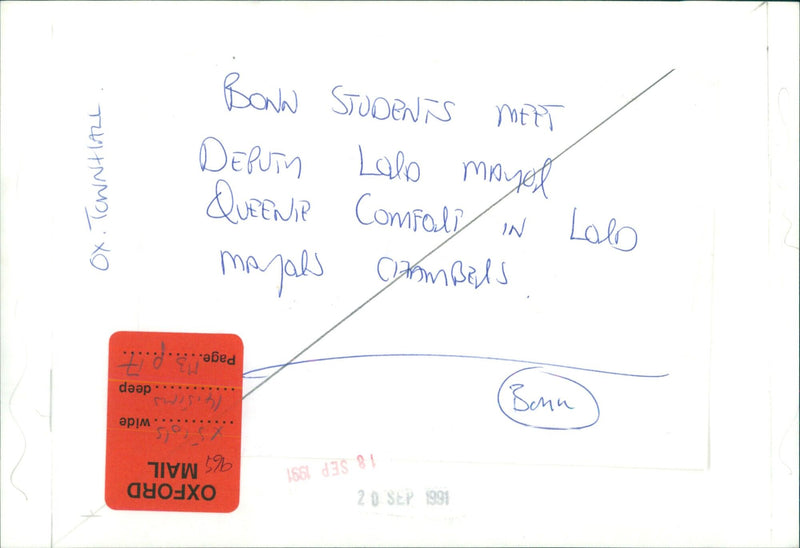 BONN STUDENTS MEET
DEPUTY LORD MAYOR
QUEENIE COMFORT IN LORD
MAYORS CHAMBERS
OX. TOWNHALL.
Bonn
OXFORD
MAIL
965
wide
deep
Page
p 17
18 SEP 1991
20 SEP 1991